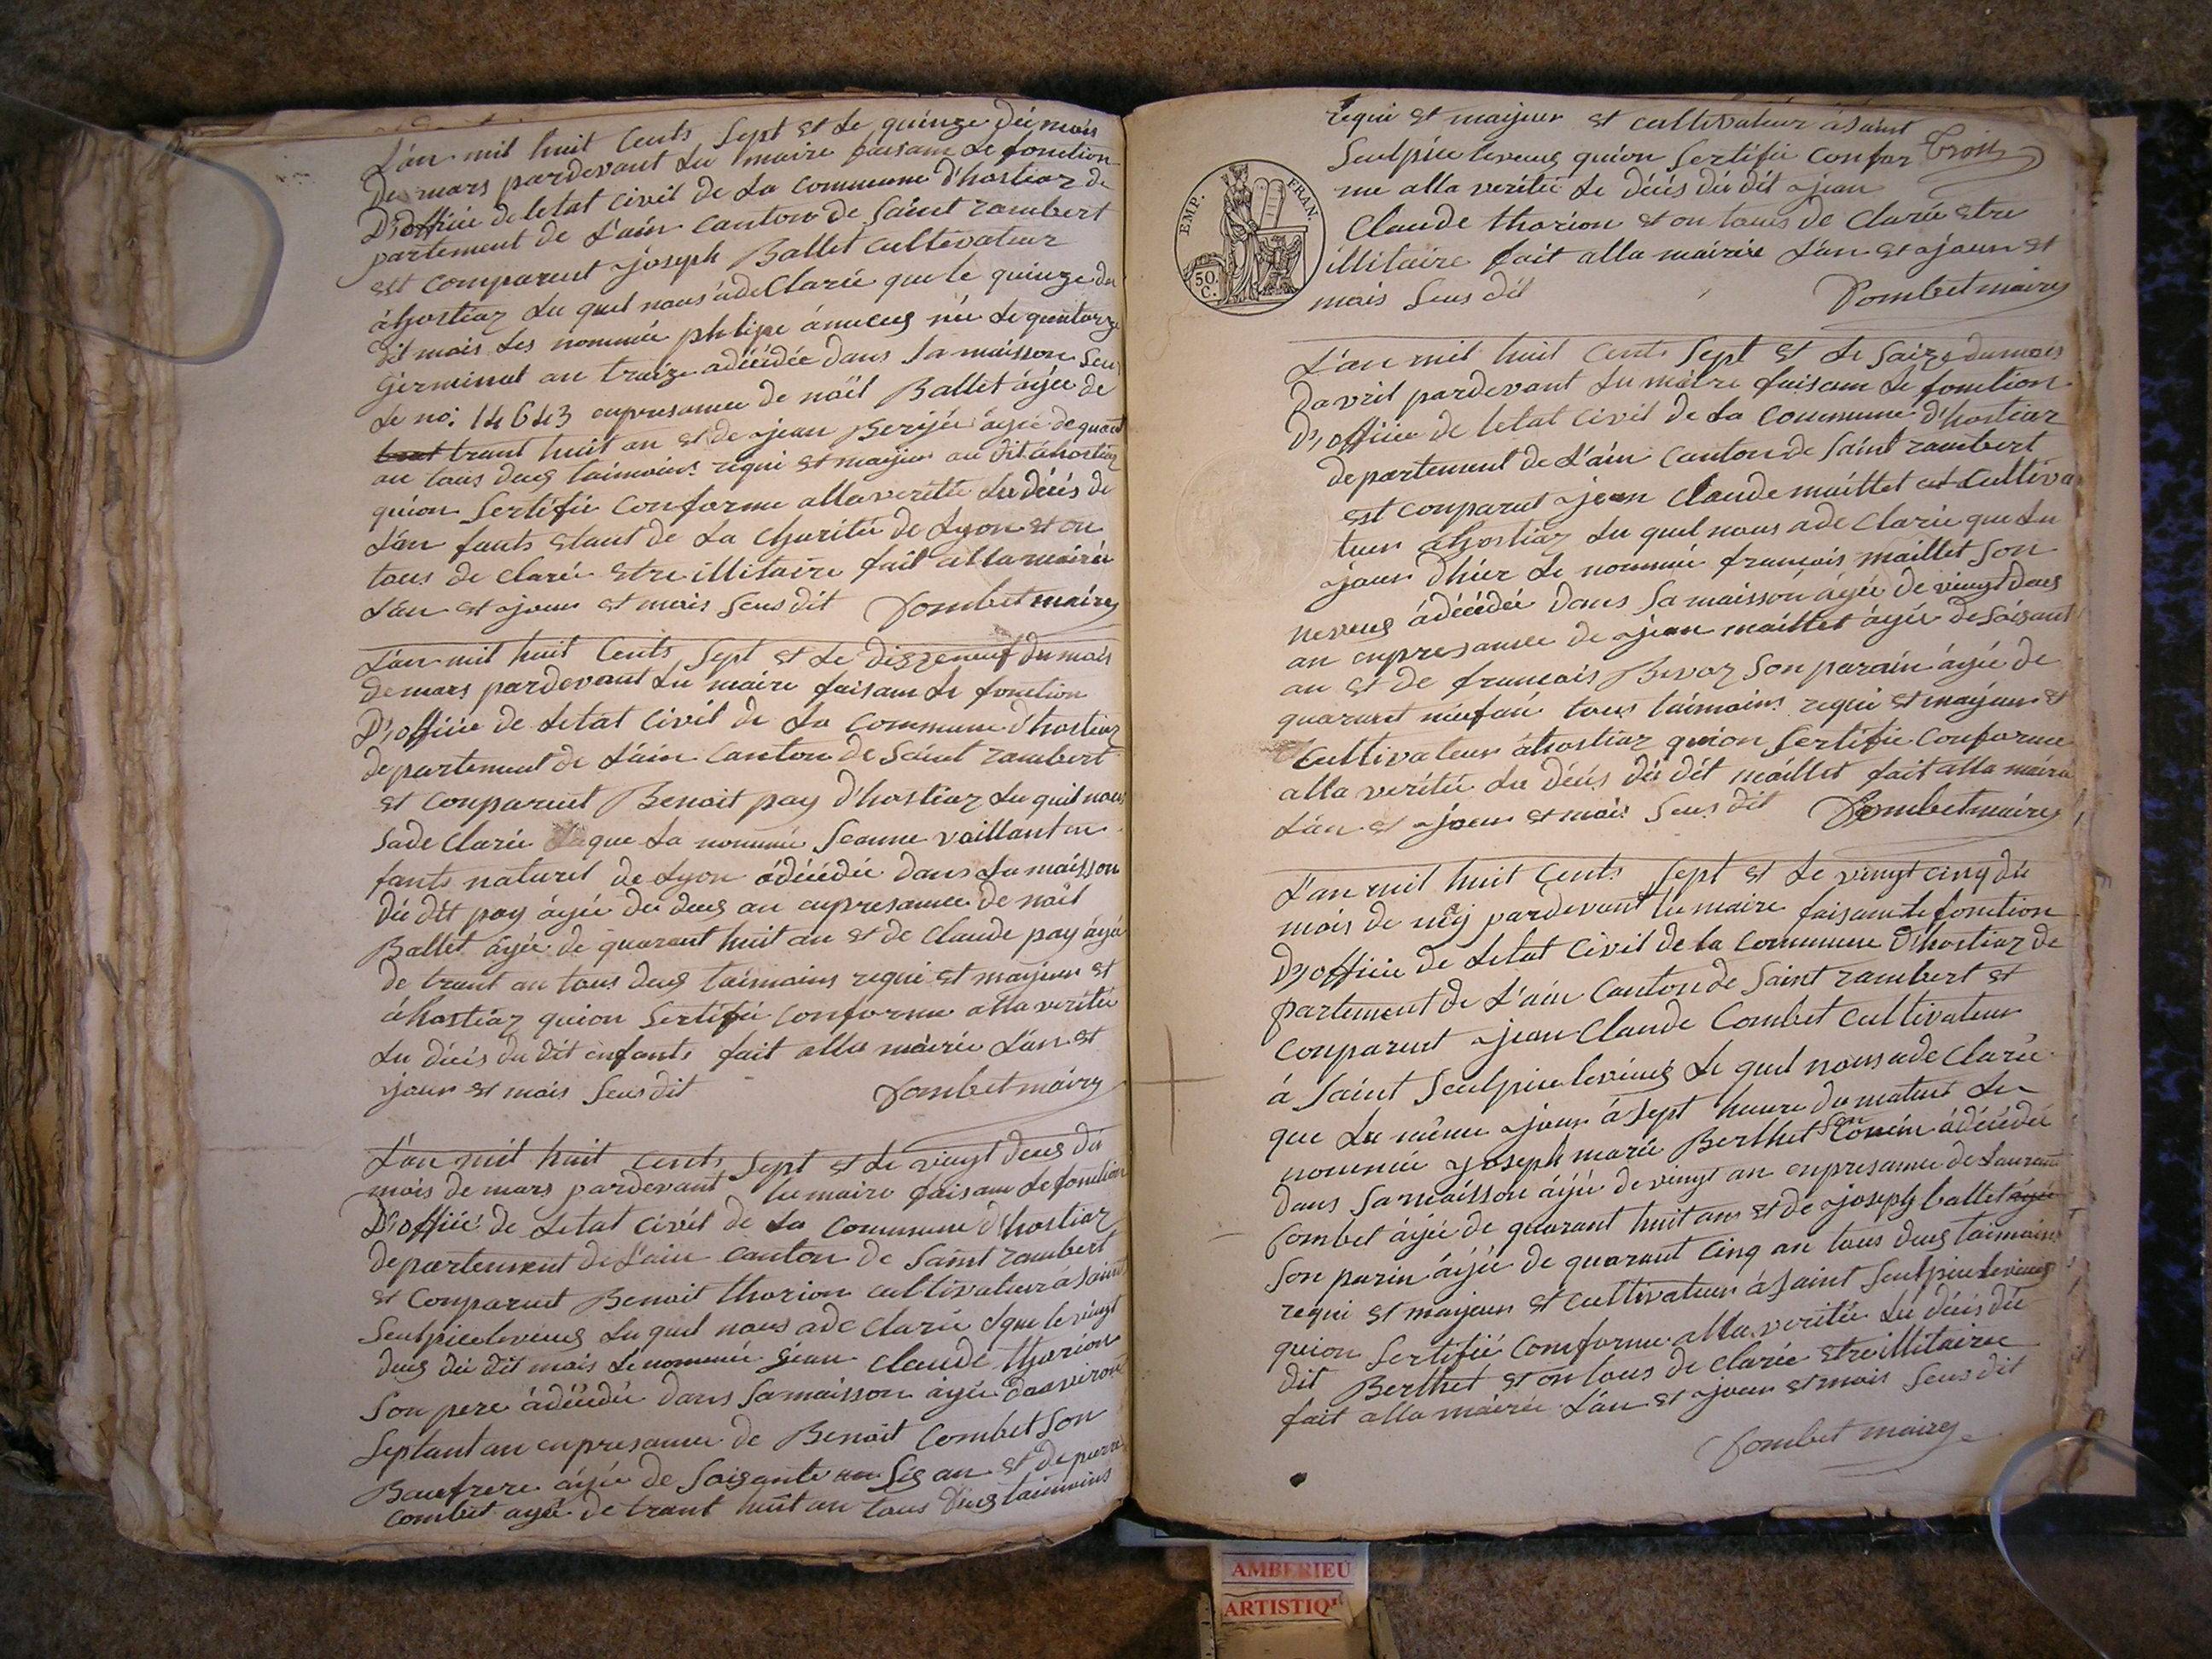 L'an mil huit Cents Sept et Le quinze dù mois
De mars pardevant Lu maire faisam Le fonction
D'office de letat Civil de La Commune d'hostiaz de
partement de L'ain Canton de Saint rambert
est Comparut joseph Ballet Cultivateur
à hostiaz Lu quel nous ade Clarée que le quinze du
dit mois Les nommée phelipe née Le quatorze
Germinal an traize adécédée dans Sa maisson Sous
Le no: 14643 enpresamce de noël Ballet àgée de
trant huit an et de jean agée de quarant
an tous deus taimoins requi et majeur au dit àhostiaz
quion Sertifée Conforme alla veritée Lu décés de
L'an fants etant de La Charitée de Lyon et on
tous de clarée etre illitaire fait alla mairée
L'an et jour et mois Sousdit Combet mairez
L'an mil huit Cents Sept et Le dizzeneuf du mois
De mars pardevant Lu maire faisam Le fonction
D'office de Letat Civil de La Commune d'hostiaz
departement de L'ain Canton de Saint rambert
et Comparut Benoit pay d'hostiaz Lu quel nous
Sade Clarée que La nommée Jeanne vaillant en
fants naturel de Lyon àdécédée dans La maisson
dù dit pay àgée de deus an enpresamce de noël
Ballet àgée de quarant huit an et de Claude pay àgée
de trant an tous deus taimoins requi et majeur et
àhostiaz quion Sertifée Conforme alla veritée
Lu décés du dit enfants fait alla mairée L'an et
jour et mois Sousdit Combet mairez
L'an mil huit Cents Sept et Le vingt deus dù
mois de mars pardevant Lu maire faisam Le fonction
D'office de Letat Civil de La Commune d'hostiaz
departement de L'ain Canton de Saint rambert
et Comparut Benoit thorion cultivateur à Saint
Seulpice levieus Lu quel nous ade Clarée que le vingt
deus dù dit mois Le nommée jean Claude thorion
Son pere àdécédée dans Sa maisson àgée danviron
Septant an enpresamce de Benoit Combet Son
Baufrere àgée de Soisante Sis an et de pierre
Combet agée de trant huit an tous deus taimoins
requi et majeur et cultivateur àSaint
Seulpice levieus quion Sertifée Confor
me alla veritée Le décés dù dit jean
Claude thorion et on tous de Clarée etre
illitaire fait alla mairée L'an et jour et
mois Sous dit Combet mairez
EMP. FRAN.
50. C.
L'an mil huit Cents Sept et Le Saize du mois
Davril pardevant Lu maire faisam Le fonction
D'office de letat Civil de La Commune d'hostiaz
departement de L'ain Canton de Saint rambert
est Comparut jean Claude maillet Cultiva
teur àhostiaz Lu quel nous ade Clarée que Lu
jour d'hier Le nommée francois maillet Son
neveus àdécédée dans Sa maisson àgée de vingt deus
an enpresamce de jean maillet àgée de Soisant
an et de francois Bevoz Son parain àgée de
quarant neufan tous taimoins requi et majeur et
Cultivateur àhostiaz quion Sertifée Conforme
alla veritée Lu décés dù dit maillet fait alla mairée
L'an et jour et mois Sous dit Combet mairez
L'an mil huit Cents Sept et Le vingt cinq dù
mois de pardevant Lu maire faisam Le fonction
D'office de Letat Civil de la Commune d'hostiaz de
partement de L'ain Canton de Saint rambert et
Comparut jean Claude Combet cultivateur
à Saint Seulpice levieus Le quel nous ade Clarée
que Lu même jour à Sept heure du matint Le
nommée joseph marie Berthet Son Cousin àdécédée
dans Sa maisson àgée de vingt an enpresamce de Laurant
Combet àgée de quarant huit ans et de joseph ballet àgée
Son parin àgée de quarant Cinq an tous deus taimoins
requi et majeur et cultivateur à Saint Seulpice levieus
quion Sertifée Comforme alla veritée Lu décés dù
dit Berthet et on tous de clarée etre illitaire
fait alla mairée L'an et jour et mois Sous dit
Combet mairez
AMBERIEU
ARTISTIQ